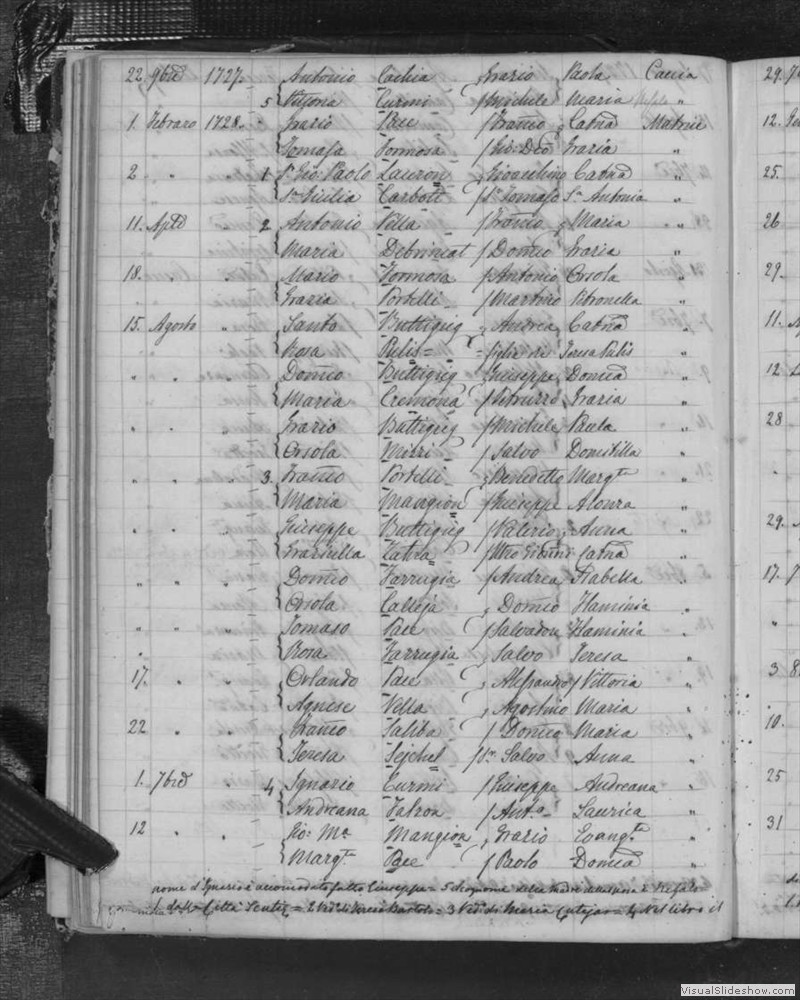 22. 9bre 1727. Antonio Cachia Grazio Paola Caccia
5 Vittoria Curmi Michele Maria "
1. Febraro 1728. " Grazio Pace Franco Catña Matrice
Tomasa Formosa Gio: Dco Grazia "
2 " " 1 Sr Gio: Paolo Lauron Gioacchino Catña "
Sra Sicilia Carbott Sr Tomaso Sra Antonia "
11. Aple 2 Antonio Vella Franco Maria "
Maria Debrincat Domco Grazia "
18. " Mario Formosa Antonio Orsola "
Grazia Portelli Martino Petronella "
15. Agosto " Santo Buttigieg Andrea Catña "
Rosa Pulis = figlia di Teresa Pulis "
" " Domco Buttigieg Giuseppe Domca "
Maria Cremona Grazia "
" " Grazio Buttigieg Michele Paula "
Orsola Micci Salvo Domitilla "
" " " 3. Franco Portelli Benedetto Margta "
Maria Mangion Giuseppe Alonza "
" " Giuseppe Buttigieg Valerio Anna "
Graziulla Catña "
" " Domco Farrugia Andrea Isabella "
Orsola Calleja Domco Flaminia "
" " " Tomaso Pace Salvadore Flaminia "
" Rosa Farrugia Salvo Teresa "
17. " " Orlando Pace Alessandro Vittoria "
Agnese Vella Agostino Maria "
22 " " Franco Saliba Domco Maria "
Teresa Sejchel Sr Salvo Anna "
1. 7bre 4 Ignazio Curmi Giuseppe Andreana "
Andreana Fabron Anto Laurica "
12 " " Gio: Ma Mangion Grazio Evangta "
Margta Pace Paolo Domca "
nome d'Ignazio è accomodato fatto Giuseppe = 5 cognome della madre
= 3 Ved. di Maria = 4 Nel libro il
29.
12.
25.
26
29.
11.
12
28
29.
17.
3
10.
25
31
VisualSlideshow.com